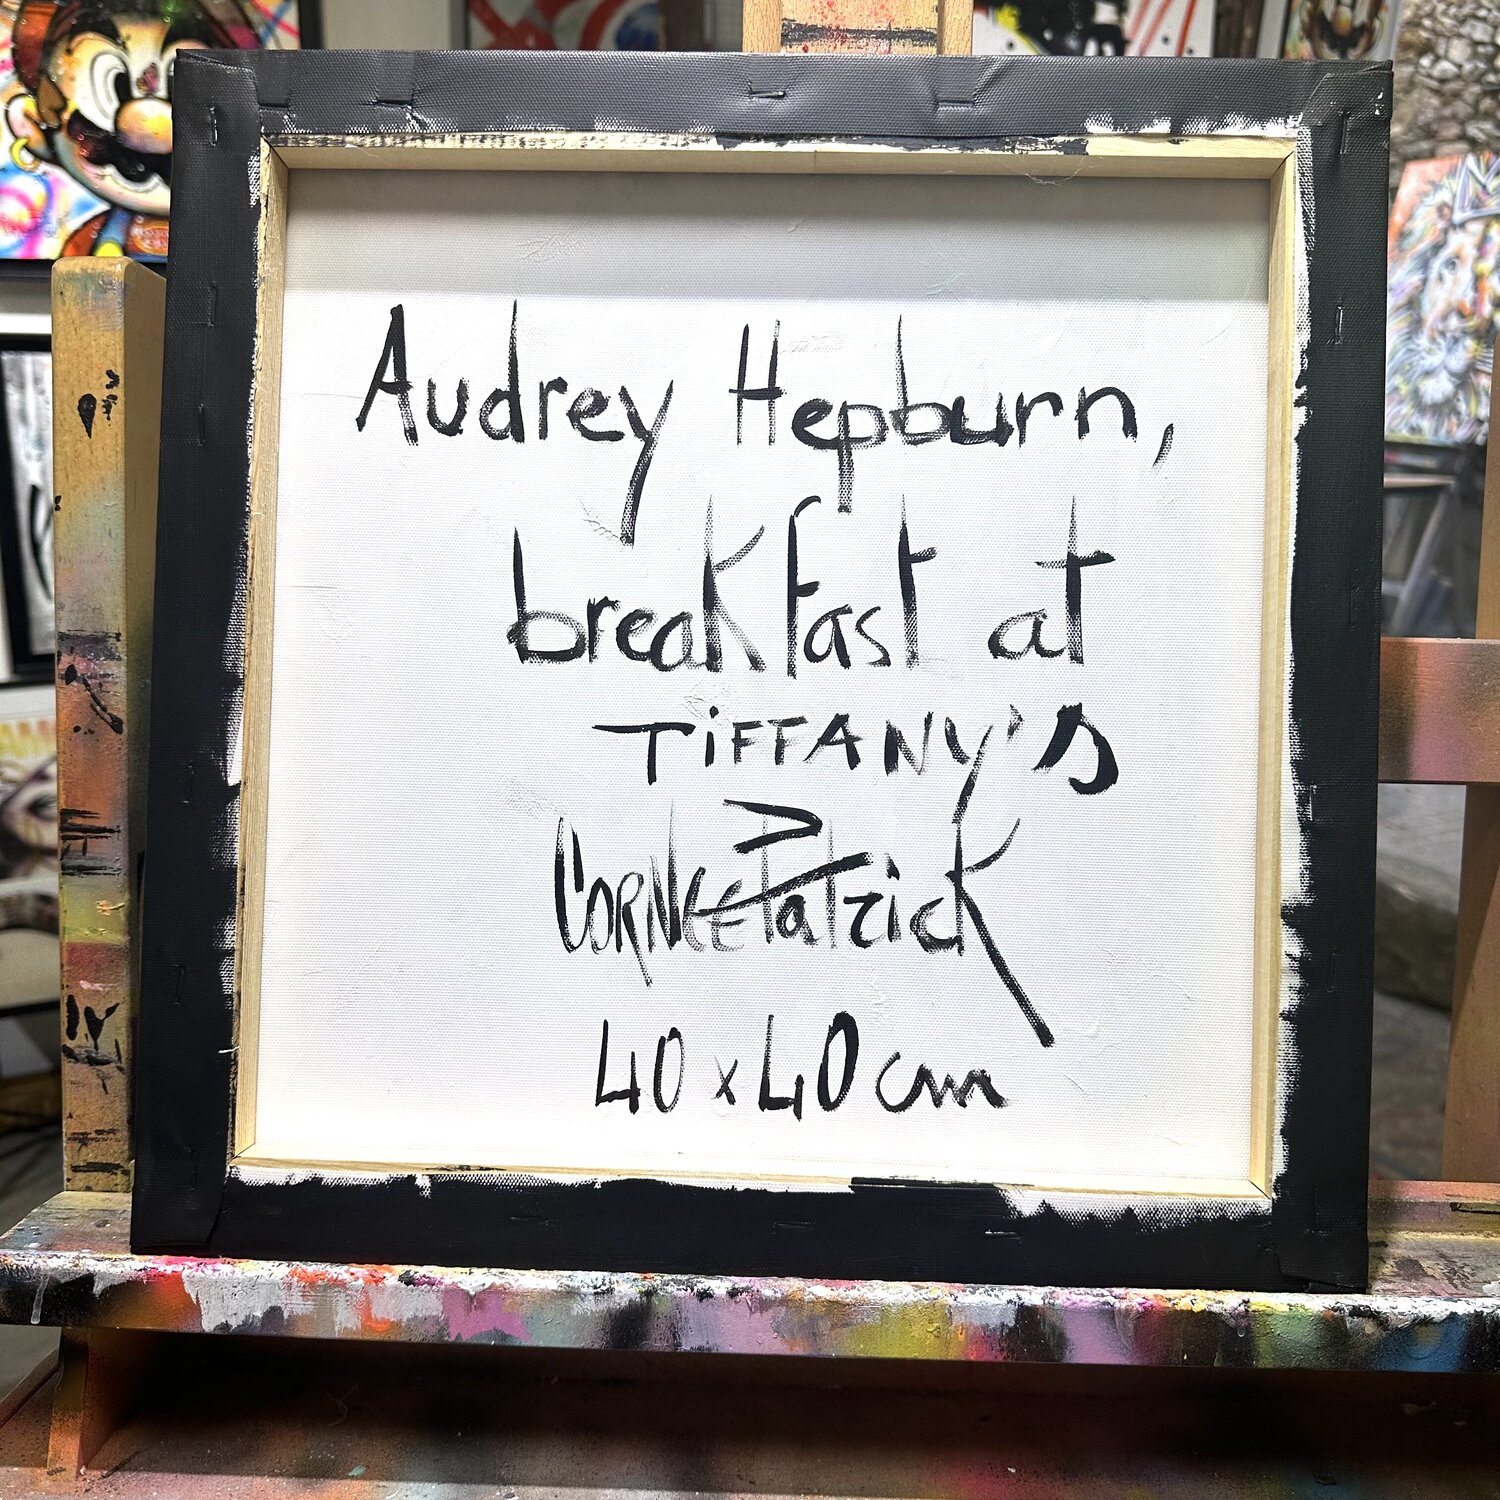 Audrey Hepburn,
breakfast at
TiFFANY's
CORNEE Patrick
40 x 40 cm